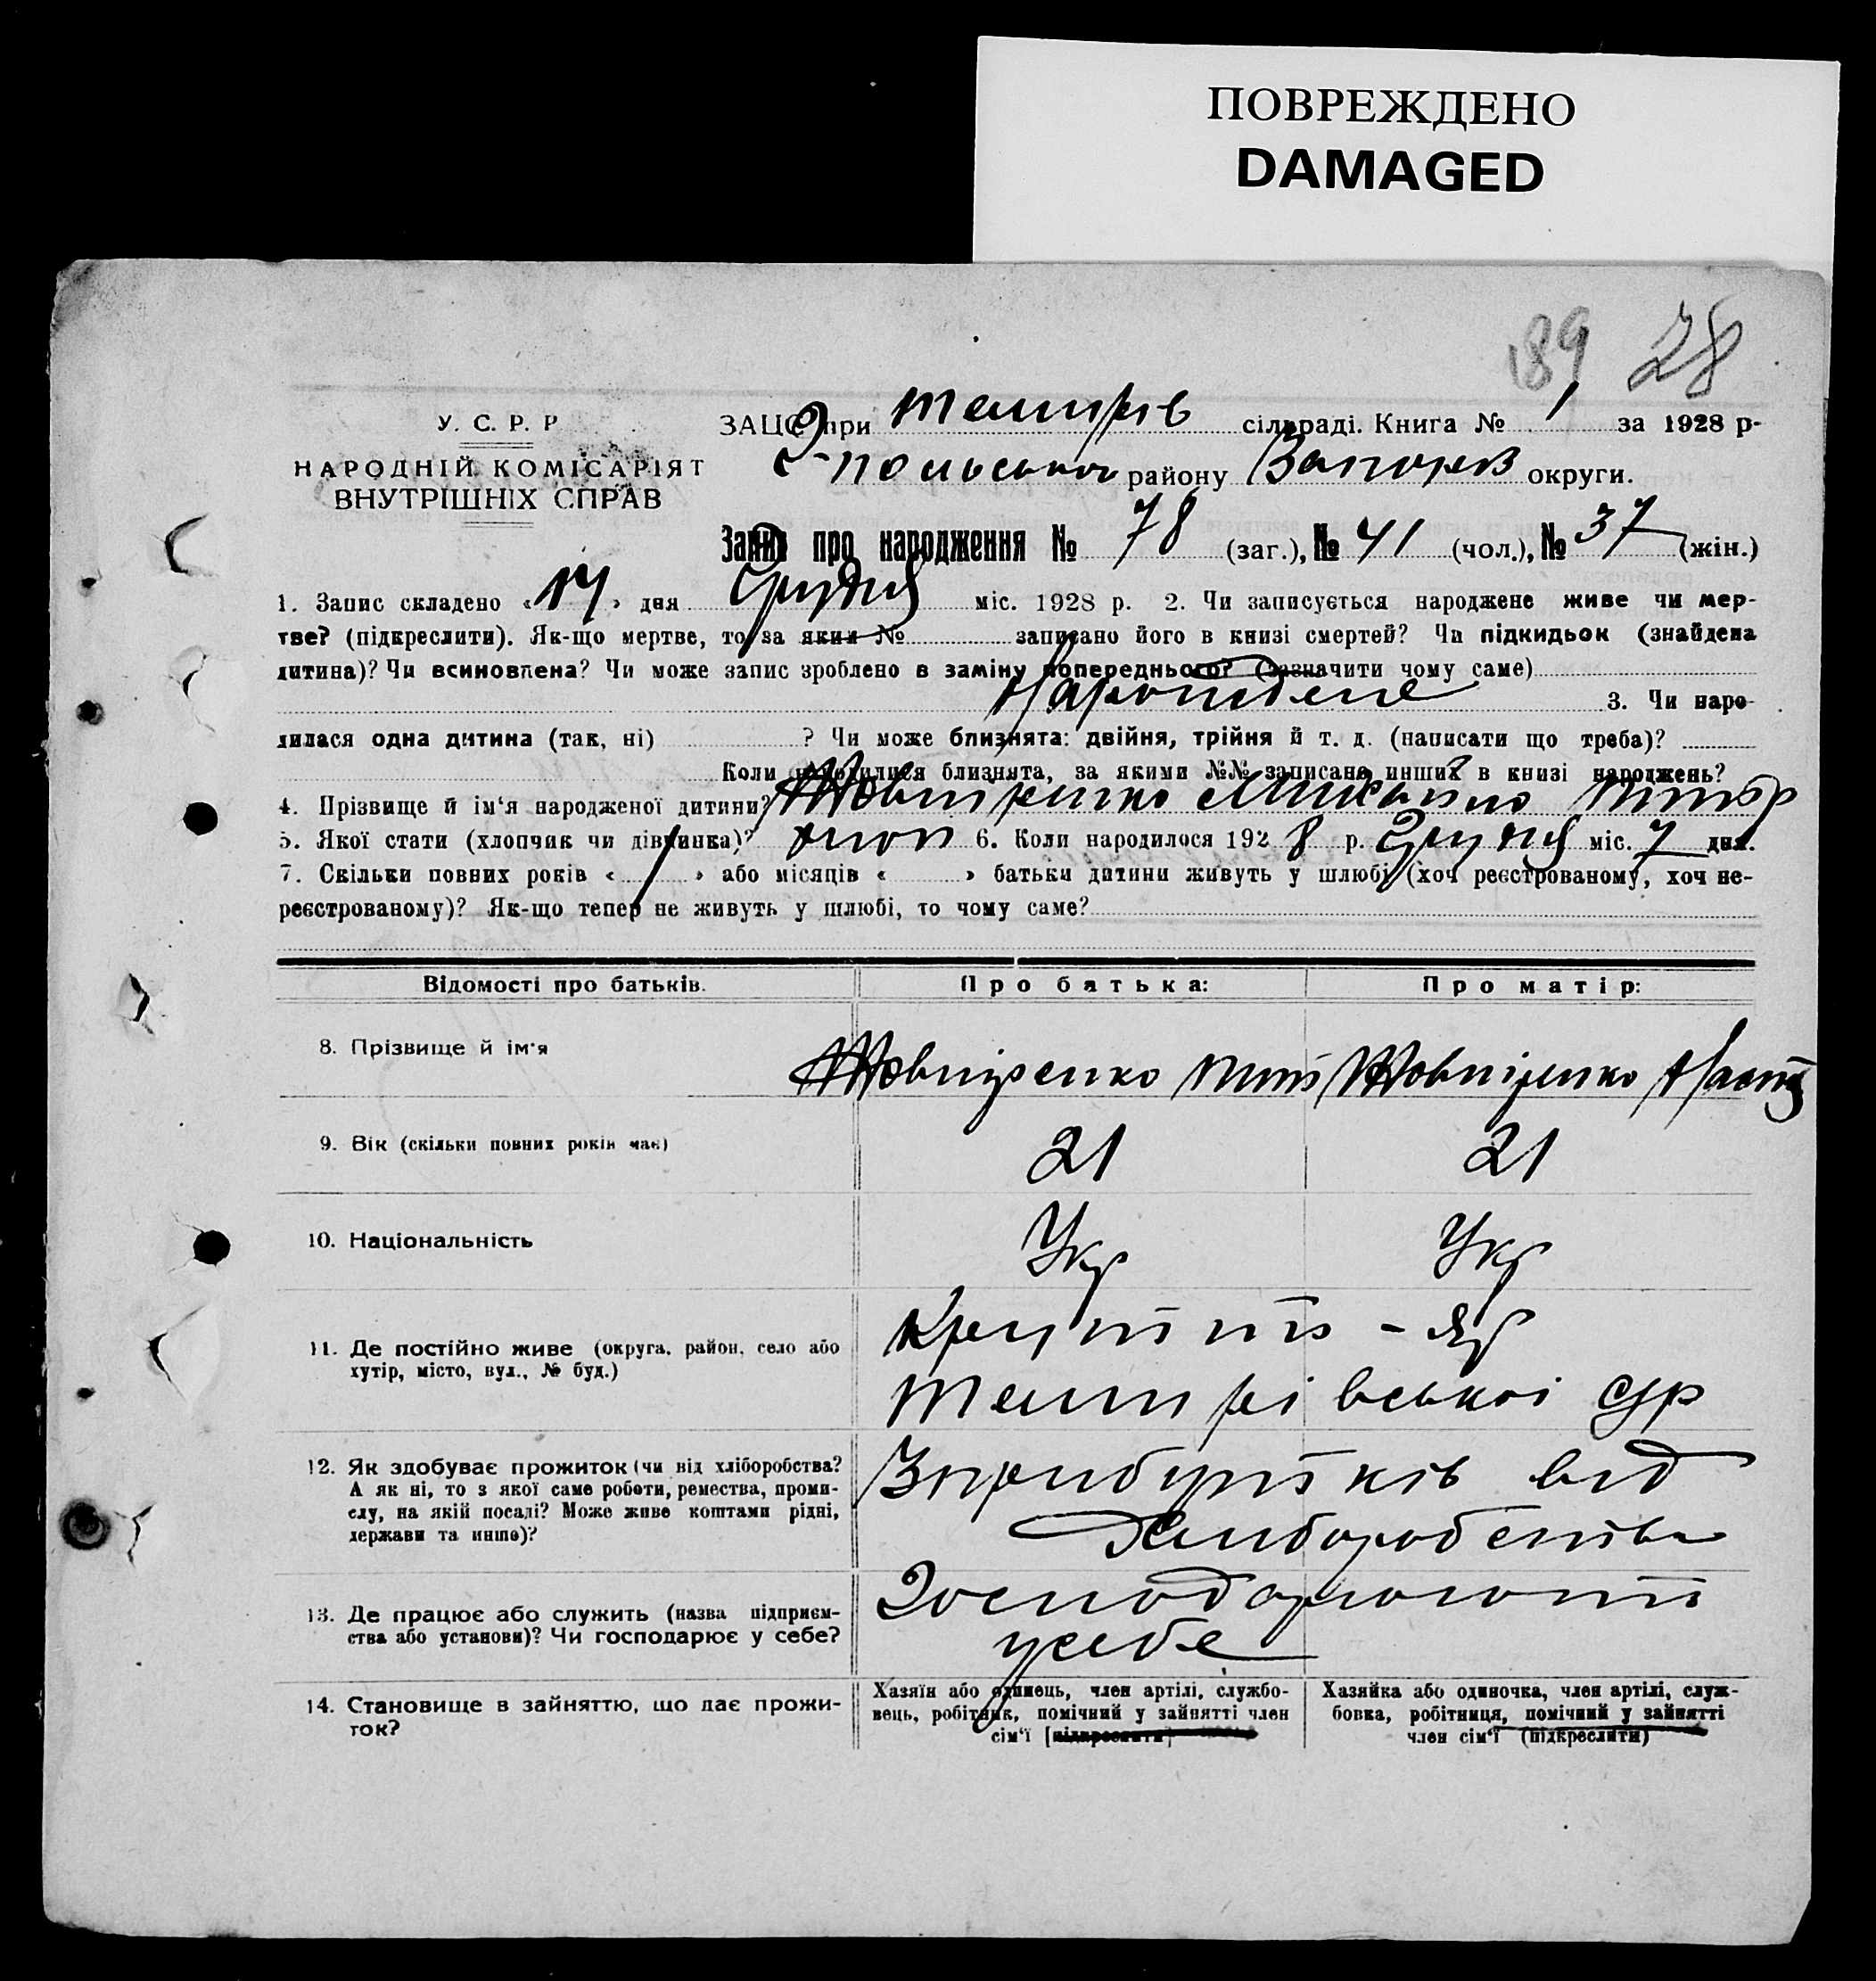 ПОВРЕЖДЕНО
DAMAGED
189 28
У. С. Р. Р
НАРОДНІЙ КОМІСАРІЯТ
ВНУТРІШНІХ СПРАВ
ЗАЦС при Темирів сільраді. Книга № 1 за 1928 р-
Г-польського району Запоріз округи.
Запис про народження № 78 (заг.), № 41 (чол.), № 37 (жін.)
1. Запис складено «14» дня Грудня міс. 1928 р. 2. Чи записується народжене живе чи мер-
тве? (підкреслити). Як-що мертве, то за яким № записано його в книзі смертей? Чи підкидьок (знайдена
дитина)? Чи всиновлена? Чи може запис зроблено в заміну попереднього? (зазначити чому саме)
Народжене 3. Чи наро-
дилася одна дитина (так, ні) ? Чи може близнята: двійня, трійня й т. д. (написати що треба)?
Коли народилися близнята, за якими №№ записано инших в книзі народжень?
4. Прізвище й ім'я народженої дитини? Жовніренко Михайло
5. Якої стати (хлопчик чи дівчинка)? хлоп 6. Коли народилося 1928 р. Грудня міс. 7 дня.
7. Скільки повних років « » або місяців « » батьки дитини живуть у шлюбі (хоч реєстрованому, хоч не-
реєстрованому)? Як-що тепер не живуть у шлюбі, то чому саме?
Відомості про батьків. Про батька: Про матір:
8. Прізвище й ім'я Жовніренко Жовніренко Наст
9. Вік (скільки повних років має) 21 21
10. Національність Укр Укр
11. Де постійно живе (округа, район, село або
хутір, місто, вул., № буд.)
Крутий-Яр
Темирівської с/р
12. Як здобуває прожиток (чи від хліборобства?
А як ні, то з якої саме роботи, ремества, проми-
слу, на якій посаді? Може живе коштами рідні,
держави та инше)?
З прибутків від
хліборобства
13. Де працює або служить (назва підприєм-
ства або установи)? Чи господарює у себе?
Господарюють
у себе
14. Становище в зайняттю, що дає прожи-
ток?
Хазяїн або одинець, член артілі, службо-
вець, робітник, помічний у зайнятті член
сім'ї [підкреслити]
Хазяйка або одиночка, член артілі, служ-
бовка, робітниця, помічний у зайнятті
член сім'ї (підкреслити)